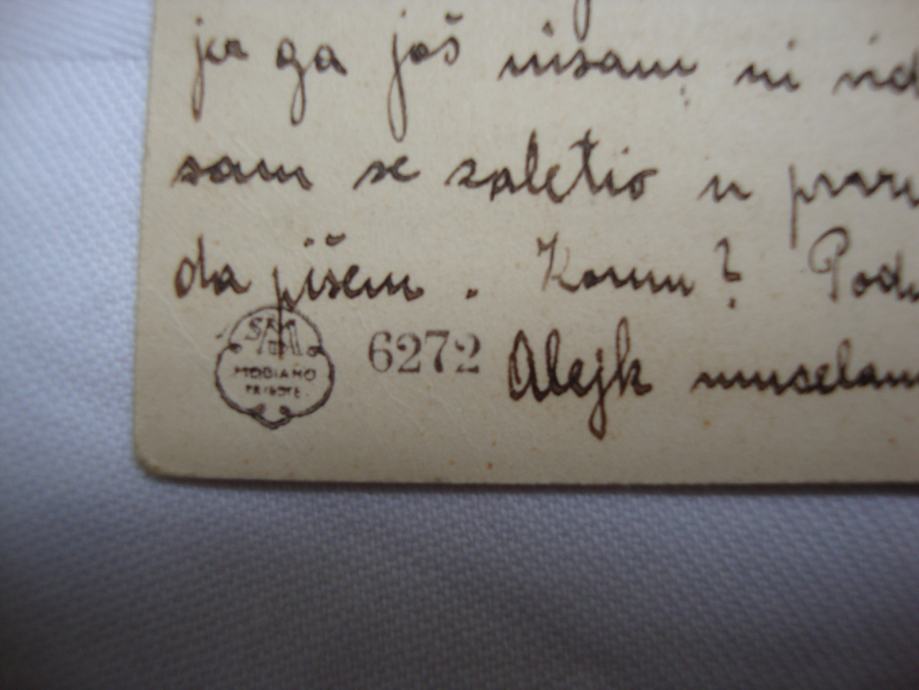 ja ga još nisam ni
sam se zaletio u
da pišem. Komu?
MODIANO
TRIESTE.
6272
Alejk muselam